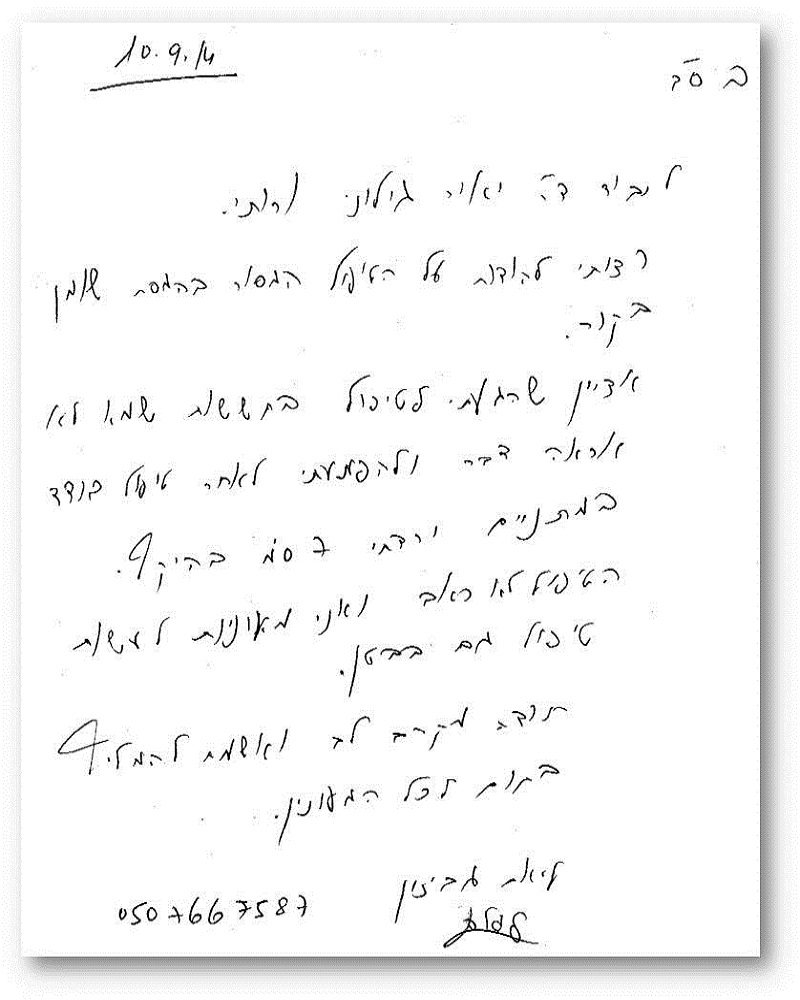 10.9.14
ב ס"ב
לכבוד ד"ר יאיר גילוני ורותי.
רציתי להודות על הטיפול המסור בהמסת שומן
בקור.
אציין שהגעתי לטיפול בחששות שמא לא
אראה דבר ולהפתעתי לאחר טיפול בודד
במתניים ירדתי 7 ס"מ בהיקף.
הטיפול לא כואב ואני מעונינת לעשות
טיפול גם בבטן.
תודה מקרב לב ואשמח להמליץ
בחום לכל המעונין.
ליאת גביזון
0507667587